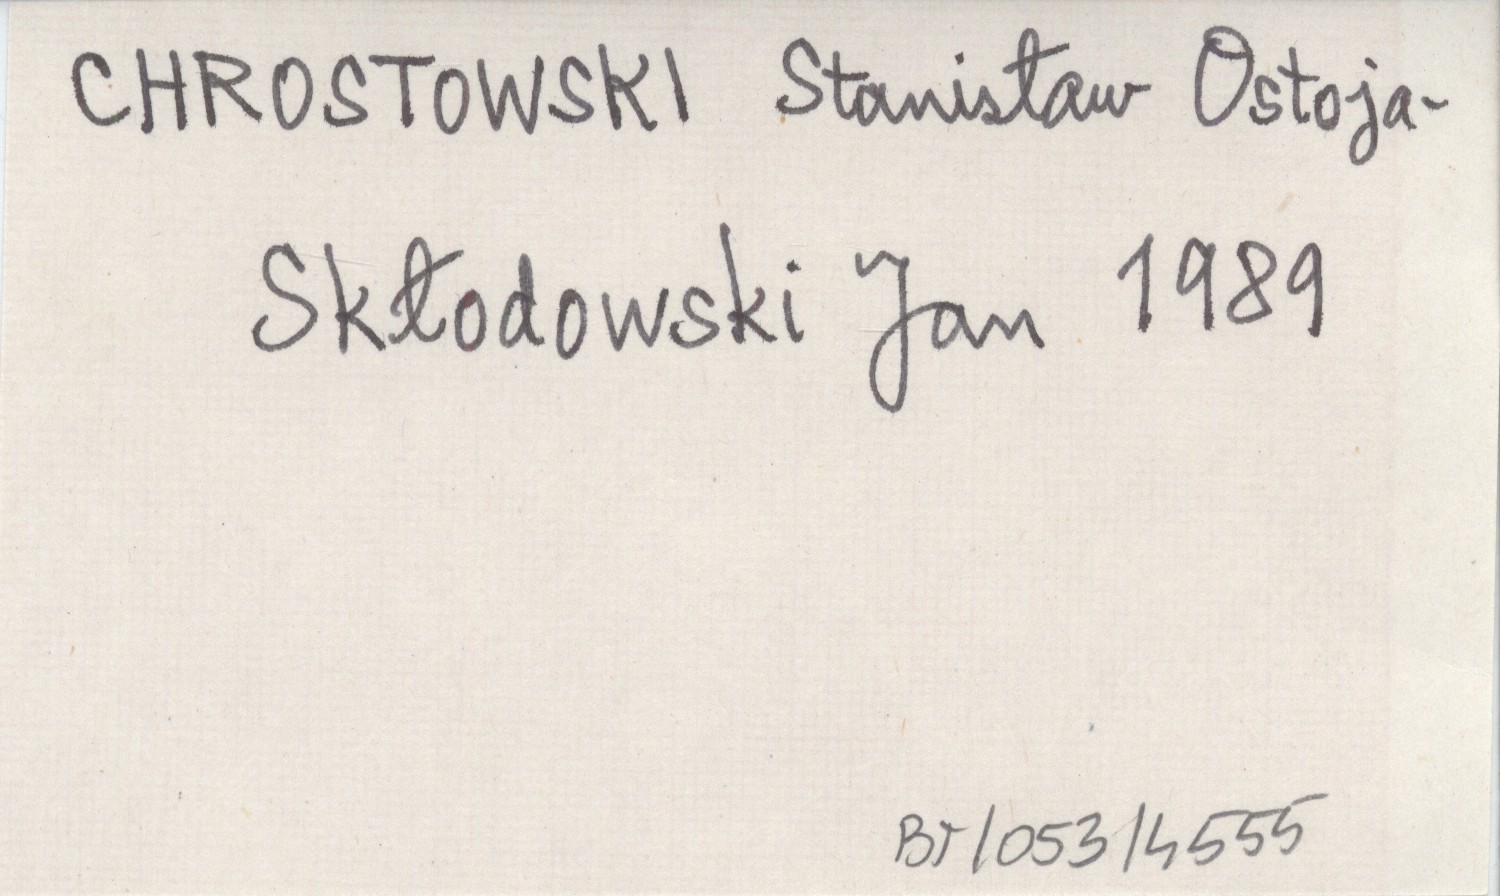 CHROSTOWSKI Stanisław Ostoja-
Skłodowski Jan 1989
BT/053/4555